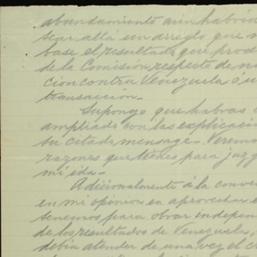 abundamiento aún habría
llegar allá un arreglo que
base el resultado que prod
de la Comisión respecto de
cion contra Venezuela ó
transacción.
Supongo que habras
ampliado con las explicacio
su citado mensage. Veremos
razones que tienes para juzg
mi ida.
Adicionalmente á la conve
en mi opinion en aprovechar
tenemos para obrar indepen
de los resultados de Venezuela,
debia atender de una vez el